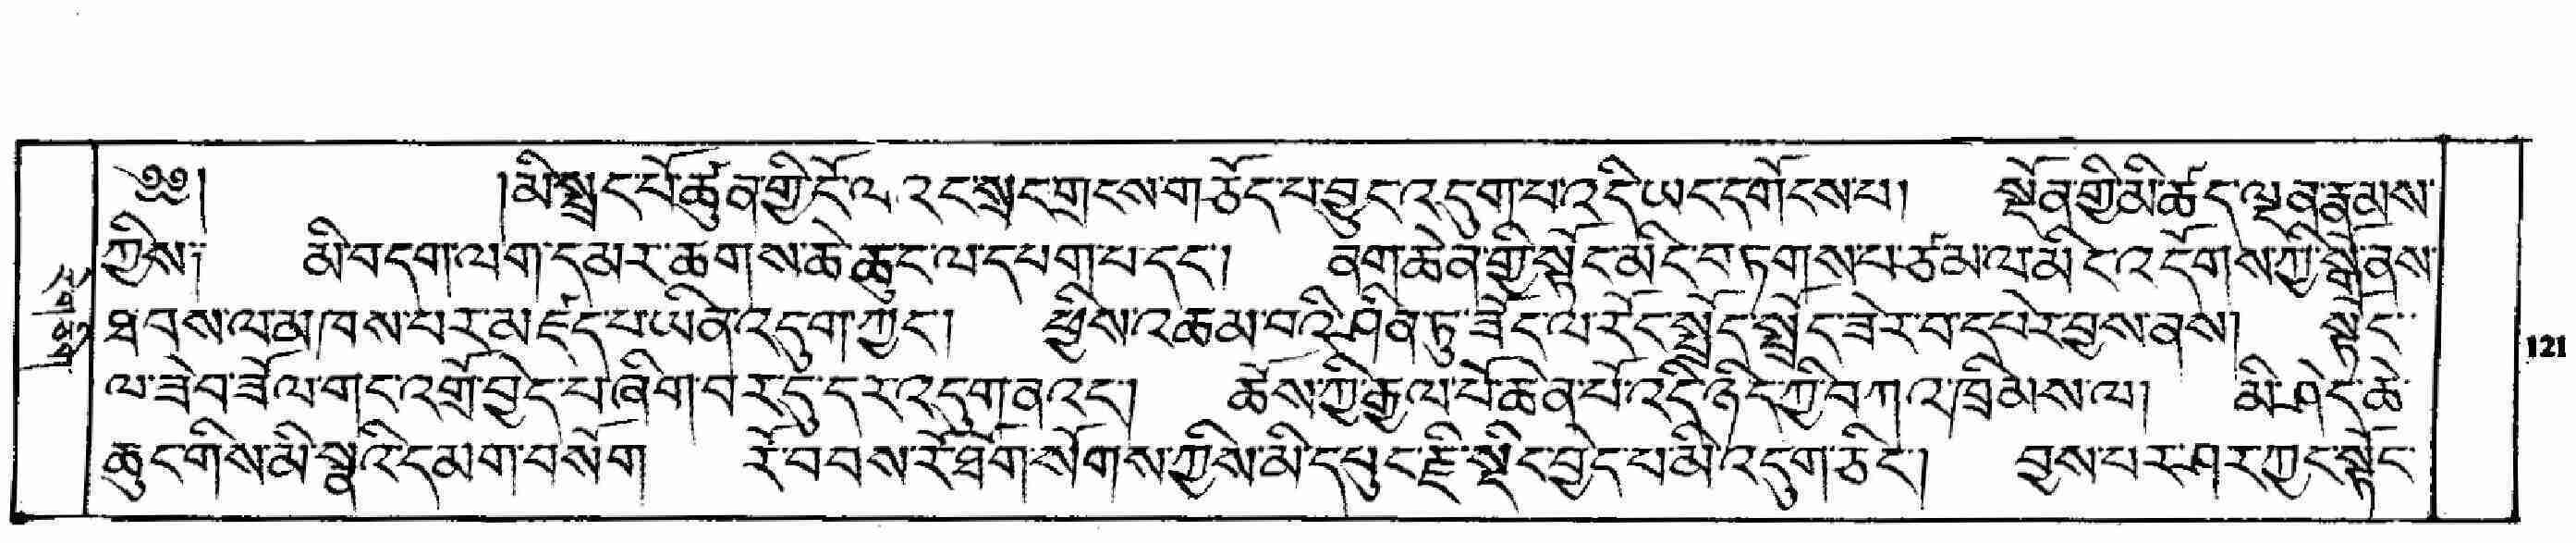 ༄༅། །མི་སྤྲང་པོ་ཚུན་གྱི་ངོ་ལ་འང་སྲང་གྲངས་གཅོད་པ་བྱུང་འདུག་པ་འདི་ཡང་དགོངས་པ། སྔོན་གྱི་མི་ཚད་ལྡན་རྣམས་
ཀྱིས་ མི་བདག་ལག་དམར་ཆགས་ཆེ་ཆུང་ལ་དཔག་པ་དང་། ནག་ཆེན་གྱི་སྟོང་མིང་བཏགས་པ་ཙམ་ལ་མིང་འདོགས་ཀྱི་སྒོ་ནས་
ཐབས་ལ་མཁས་པར་མཛད་པ་ཡིན་འདུག་ཀྱང་། ཕྱིས་འཆམ་བའི་ཤིན་ཏུ་ཟོང་ལ་རོང་སྤྲོད་སྤྲོད་ཟེར་བ་དཔེར་བྱས་ནས། སྟོང་
ལ་ཟེབ་ཟོལ་གང་འགྲོ་བྱེད་པ་ཞིག་བར་དུ་དར་འདུག་ནའང་། ཆོས་ཀྱི་རྒྱལ་པོ་ཆེན་པོ་འདི་ཉིད་ཀྱི་བཀའ་ཁྲིམས་ལ། མི་ཤེད་ཆེ་
ཆུང་གིས་མི་སྣའི་དམག་བསོག རོ་བབས་རོ་ཐོག་སོགས་ཀྱིས་མི་དཔུང་རྫི་སྡིང་བྱེད་པ་མི་འདུག་ཅིང་། བྱས་པར་ཤར་ཀྱང་སྟོང་
121